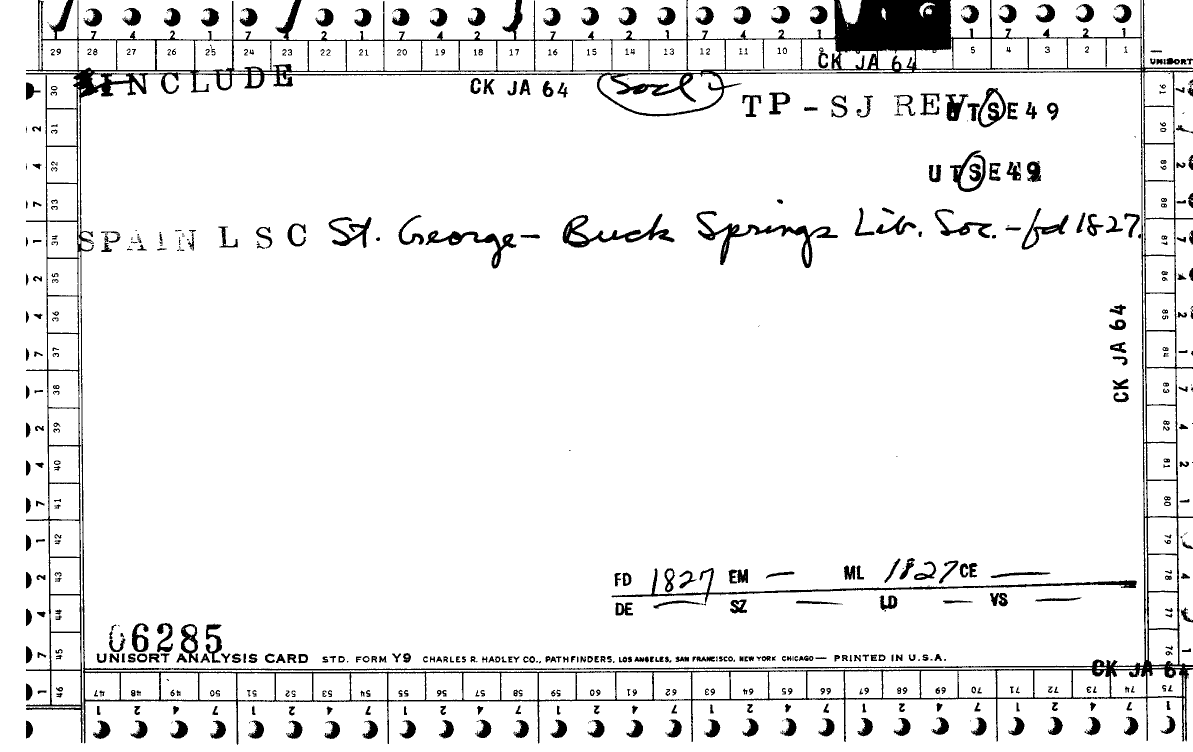 1 7 4 2 1 7 4 2 1 7 4 2 1 7 4 2 1 7 4 2 1 1 7 4 2 1
29 28 27 26 25 24 23 22 21 20 19 18 17 16 15 14 13 12 11 10 9 5 4 3 2 1
UNISORT
CK JA 64
INCLUDE
CK JA 64
Socl ?
TP-SJ REV
UTSE49
UTSE49
SPAIN LSC St. George- Buck Springs Lib. Soc. - fd 1827.
CK JA 64
FD 1827 EM — ML 1827 CE —
DE — SZ — LD — VS —
06285
UNISORT ANALYSIS CARD STD. FORM Y9 CHARLES R. HADLEY CO., PATHFINDERS, LOS ANGELES, SAN FRANCISCO, NEW YORK CHICAGO— PRINTED IN U.S.A.
CK JA 64
30 31 32 33 34 35 36 37 38 39 40 41 42 43 44 45 46
91 90 89 88 87 86 85 84 83 82 81 80 79 78 77 76 75
47 48 49 50 51 52 53 54 55 56 57 58 59 60 61 62 63 64 65 66 67 68 69 70 71 72 73 74
1 2 4 7 1 2 4 7 1 2 4 7 1 2 4 7 1 2 4 7 1 2 4 7 1 2 4 7